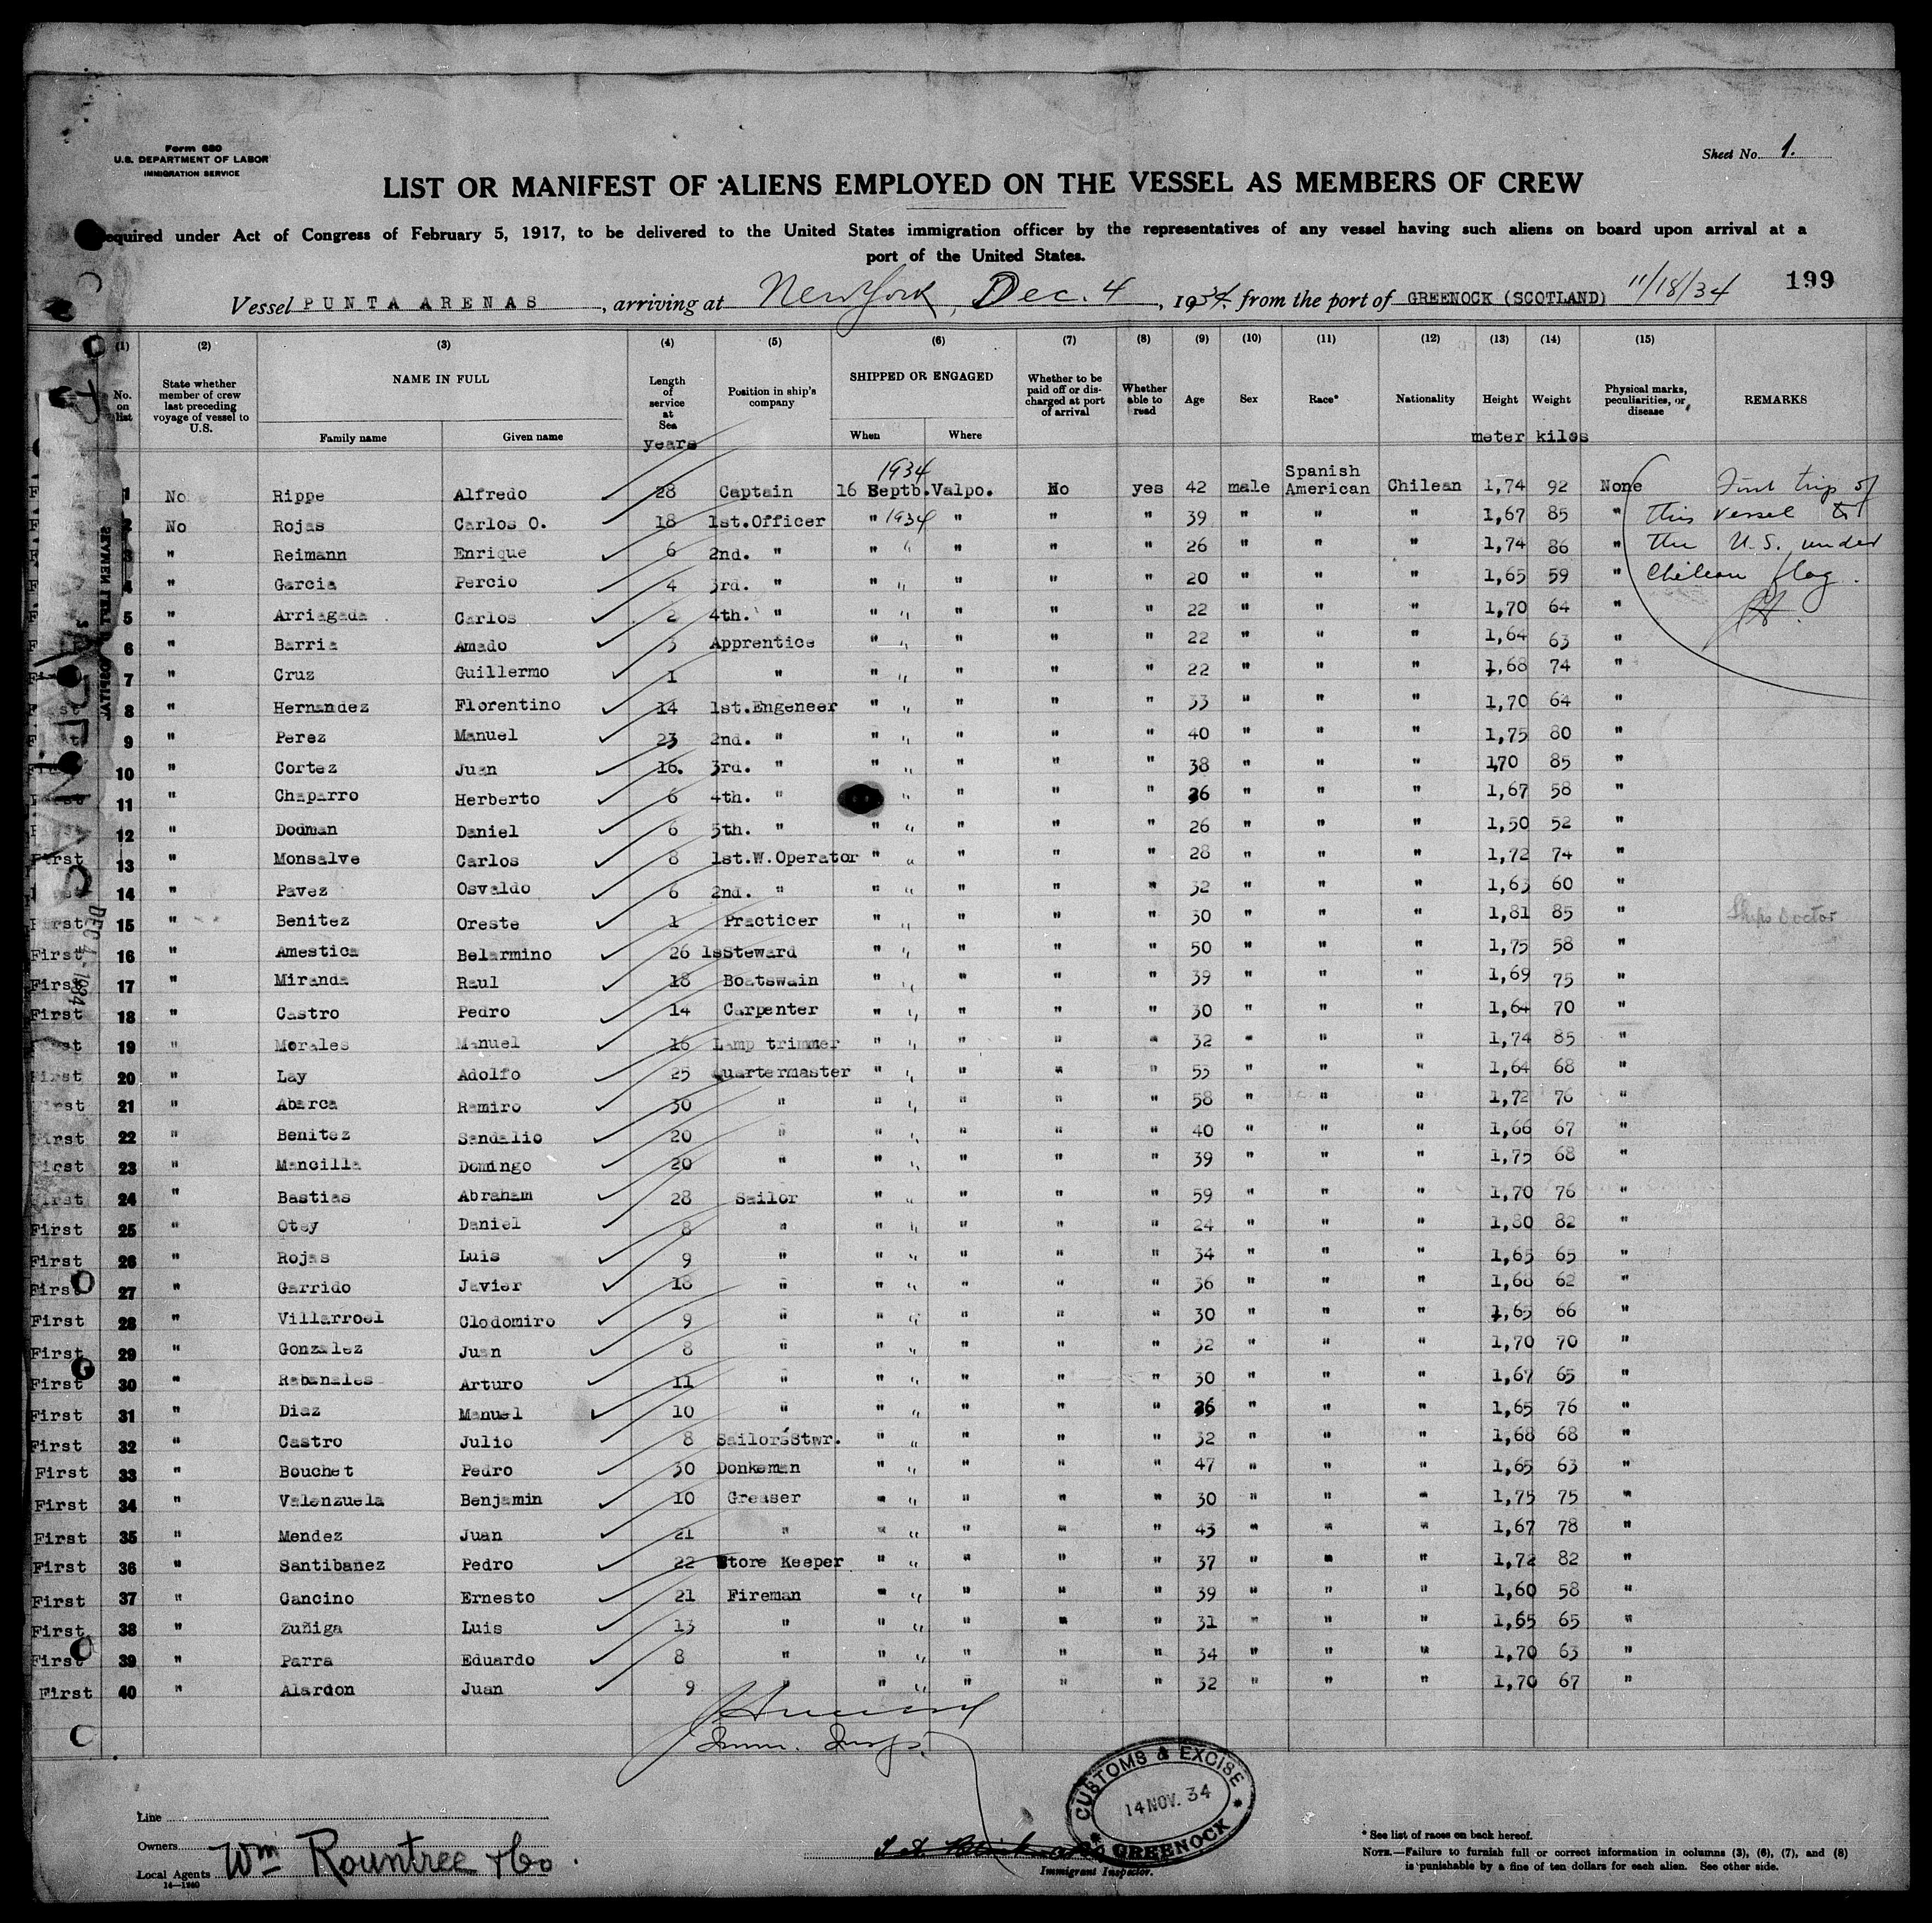 Form 680
U.S. DEPARTMENT OF LABOR
IMMIGRATION SERVICE
Sheet No. 1.
LIST OR MANIFEST OF ALIENS EMPLOYED ON THE VESSEL AS MEMBERS OF CREW
equired under Act of Congress of February 5, 1917, to be delivered to the United States immigration officer by the representatives of any vessel having such aliens on board upon arrival at a
port of the United States.
199
Vessel PUNTA ARENAS, arriving at New York, Dec. 4, 1934 from the port of GREENOCK (SCOTLAND) 11/18/34
(1) (2) (3) (4) (5) (6) (7) (8) (9) (10) (11) (12) (13) (14) (15)
No. on list State whether member of crew last preceding voyage of vessel to U.S. NAME IN FULL Family name Given name Length of service at Sea years Position in ship's company SHIPPED OR ENGAGED When Where Whether to be paid off or discharged at port of arrival Whether able to read Age Sex Race* Nationality Height meter Weight kilos Physical marks, peculiarities, or disease REMARKS
1 No Rippe Alfredo 28 Captain 16 Septb. 1934 Valpo. No yes 42 male Spanish American Chilean 1,74 92 None First trip of
2 No Rojas Carlos O. 18 1st.Officer " 1934 " " " 39 " " " 1,67 85 " this vessel to
3 " Reimann Enrique 6 2nd. " " " " " " 26 " " " 1,74 86 " the U.S. under
4 " Garcia Percio 4 3rd. " " " " " " 20 " " " 1,65 59 " Chilean flag.
5 " Arriagada Carlos 2 4th. " " " " " " 22 " " " 1,70 64 "
6 " Barria Amado 3 Apprentice " " " " " 22 " " " 1,64 63 "
7 " Cruz Guillermo 1 " " " " " " 22 " " " 1,68 74 "
8 " Hernandez Florentino 14 1st.Engeneer " " " " " 33 " " " 1,70 64 "
9 " Perez Manuel 23 2nd. " " " " " " 40 " " " 1,75 80 "
10 " Cortez Juan 16. 3rd. " " " " " " 38 " " " 170 85 "
11 " Chaparro Herberto 6 4th. " " " " " 26 " " " 1,67 58 "
12 " Dodman Daniel 6 5th. " " " " " " 26 " " " 1,50 52 "
First 13 " Monsalve Carlos 8 1st.W.Operator " " " " " 28 " " " 1,72 74 "
14 " Pavez Osvaldo 6 2nd. " " " " " " 32 " " " 1,63 60 "
First 15 " Benitez Oreste 1 Practicer " " " " " 30 " " " 1,81 85 " Ships Doctor
First 16 " Amestica Belarmino 26 1sSteward " " " " " 50 " " " 1,75 58 "
First 17 " Miranda Raul 18 Boatswain " " " " " 39 " " " 1,69 75 "
First 18 " Castro Pedro 14 Carpenter " " " " " 30 " " " 1,64 70 "
First 19 " Morales Manuel 16 Lamp trimmer " " " " " 32 " " " 1,74 85 "
First 20 " Lay Adolfo 25 Quartermaster " " " " " 55 " " " 1,64 68 "
First 21 " Abarca Ramiro 30 " " " " " " 58 " " " 1,72 76 "
First 22 " Benitez Sandalio 20 " " " " " " 40 " " " 1,66 67 "
First 23 " Mancilla Domingo 20 " " " " " " 39 " " " 1,75 68 "
First 24 " Bastias Abraham 28 Sailor " " " " " 59 " " " 1,70 76 "
First 25 " Otey Daniel 8 " " " " " " 24 " " " 1,80 82 "
First 26 " Rojas Luis 9 " " " " " " 34 " " " 1,65 65 "
First 27 " Garrido Javier 18 " " " " " " 36 " " " 1,68 62 "
First 28 " Villarroel Clodomiro 9 " " " " " " 30 " " " 1,65 66 "
First 29 " Gonzalez Juan 8 " " " " " " 32 " " " 1,70 70 "
First 30 " Rabanales Arturo 11 " " " " " " 30 " " " 1,67 65 "
First 31 " Diaz Manuel 10 " " " " " " 26 " " " 1,65 76 "
First 32 " Castro Julio 8 Sailor's Stwr. " " " " " 32 " " " 1,68 68 "
First 33 " Bouchet Pedro 30 Donkeman " " " " " 47 " " " 1,65 63 "
First 34 " Valenzuela Benjamin 10 Greaser " " " " " 30 " " " 1,75 75 "
First 35 " Mendez Juan 21 " " " " " " 43 " " " 1,67 78 "
First 36 " Santibanez Pedro 22 Store Keeper " " " " " 37 " " " 1,72 82 "
First 37 " Cancino Ernesto 21 Fireman " " " " " 39 " " " 1,60 58 "
First 38 " Zuñiga Luis 13 " " " " " " 31 " " " 1,65 65 "
First 39 " Parra Eduardo 8 " " " " " " 34 " " " 1,70 63 "
First 40 " Alardon Juan 9 " " " " " " 32 " " " 1,70 67 "
Imm. Insp.
DEC 4 - 1934
CUSTOMS & EXCISE
14 NOV. 34
GREENOCK
Line
Owners
Local Agents Wm Rountree & Co.
14—1240
Immigrant Inspector.
* See list of races on back hereof.
NOTE.—Failure to furnish full or correct information in columns (3), (6), (7), and (8)
is punishable by a fine of ten dollars for each alien. See other side.